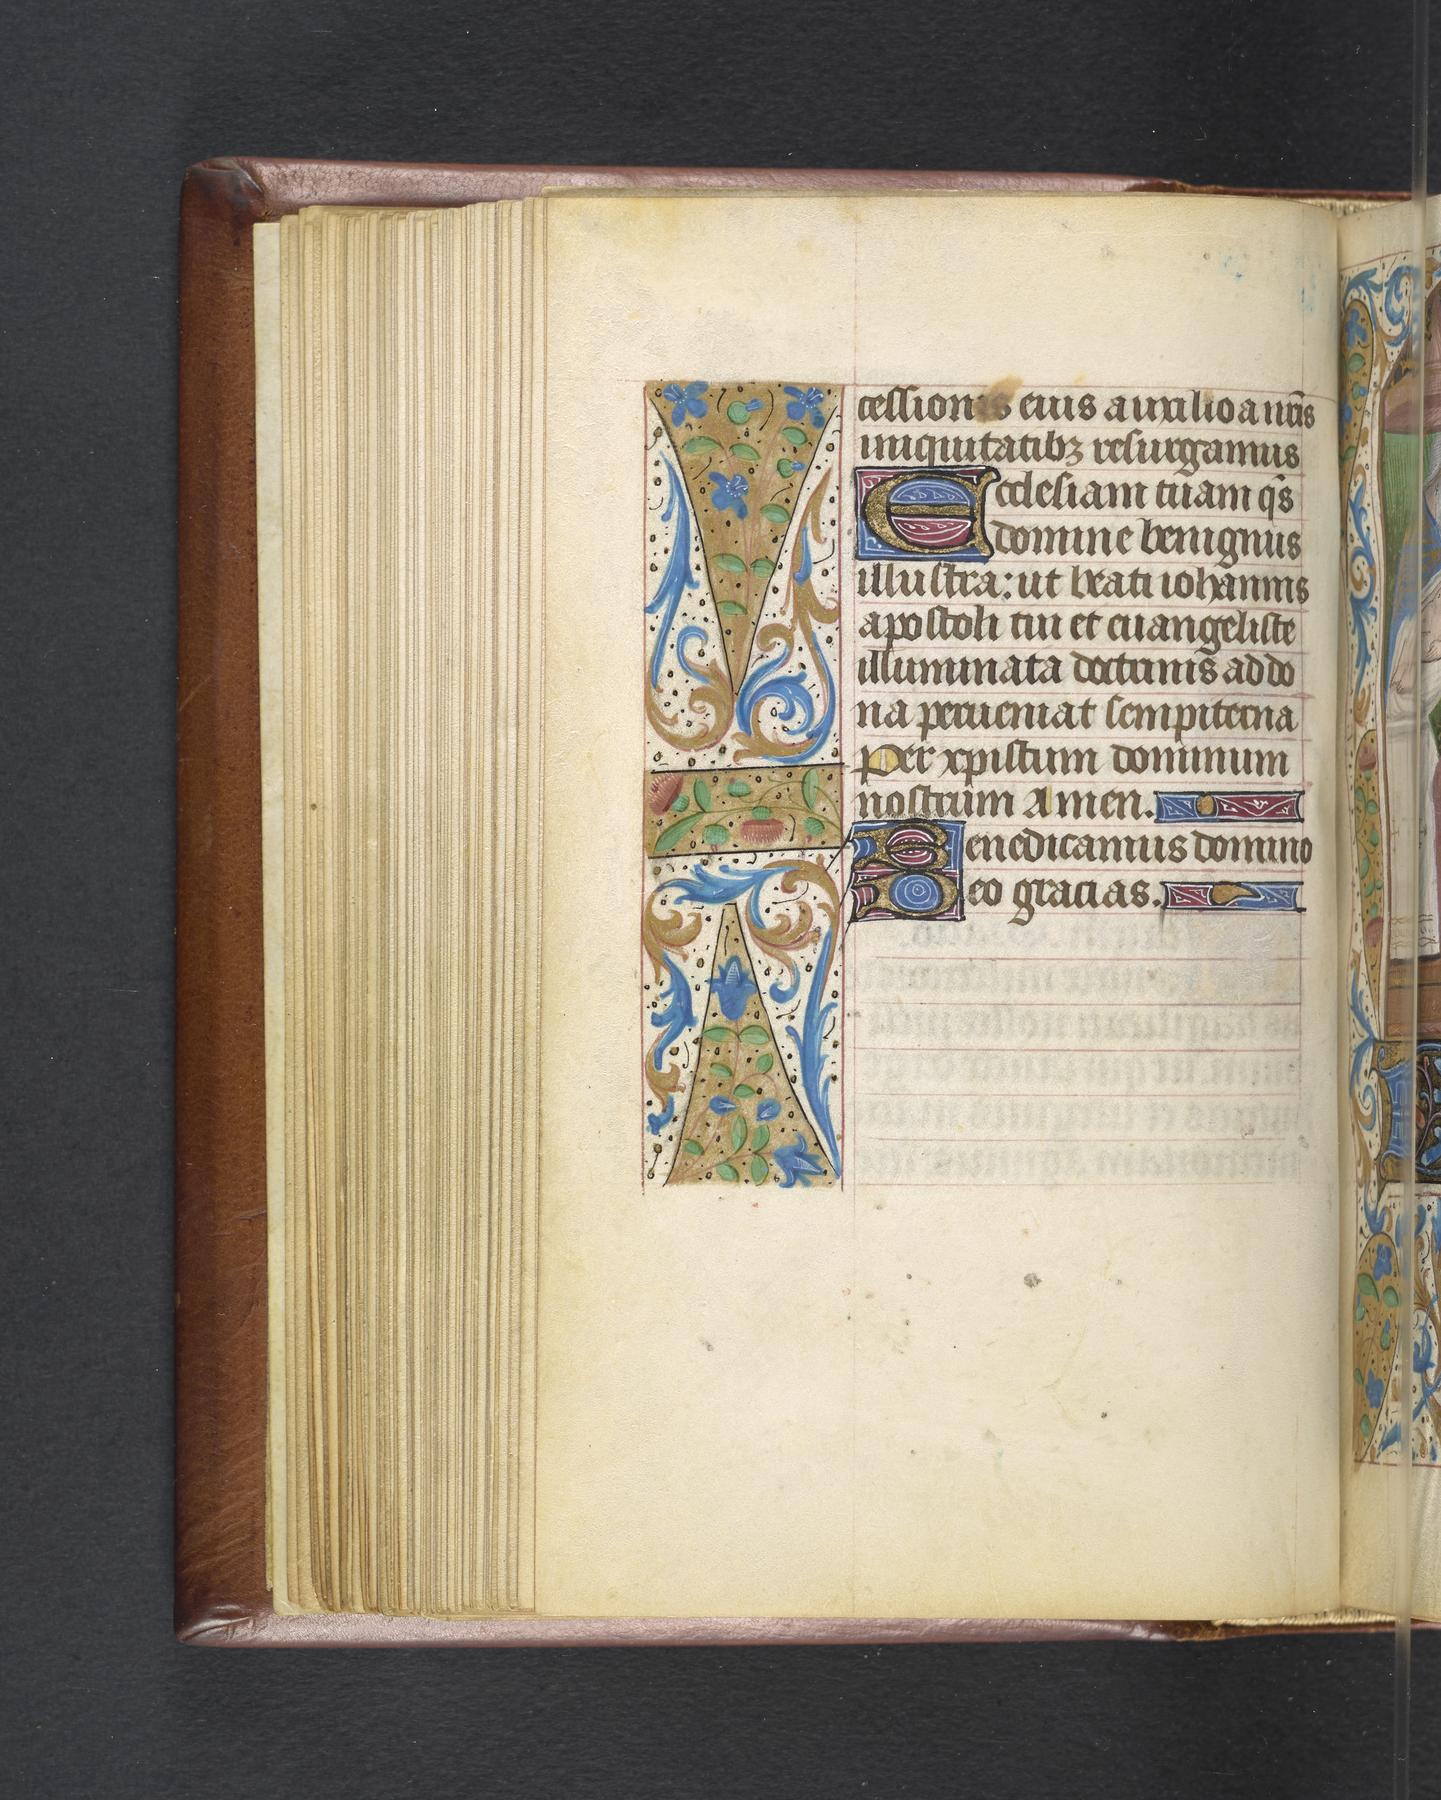 cessionis eius auxilio a nr̃is
iniquitatibꝫ resurgamus
Ecclesiam tuam q̃s
domine benignus
illustra: ut beati iohannis
apostoli tui et euangeliste
illuminata doctrinis ad do
na perueniat sempiterna
Per xpistum dominum
nostrum Amen.
Benedicamus domino
Deo gracias.